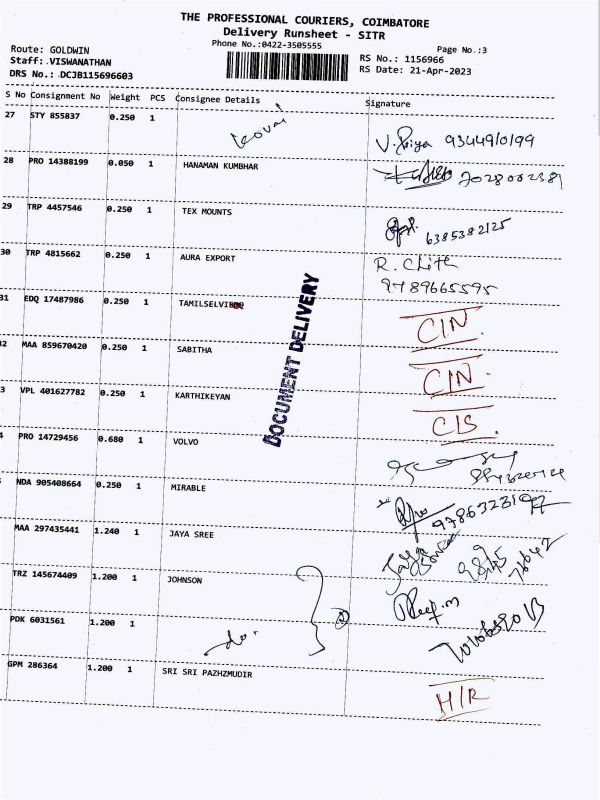 THE PROFESSIONAL COURIERS, COIMBATORE
Delivery Runsheet - SITR
Phone No.:0422-3505555
Page No.:3
Route: GOLDWIN
Staff: VISWANATHAN
DRS No.: DCJB115696603
RS No.: 1156966
RS Date: 21-Apr-2023
S No Consignment No Weight PCS Consignee Details Signature
27 STY 855837 0.250 1 V. Priya 9344910199
28 PRO 14388199 0.050 1 HANAMAN KUMBHAR 7028002381
29 TRP 4457546 0.250 1 TEX MOUNTS 6385382125
30 TRP 4815662 0.250 1 AURA EXPORT R. Chith
9789665595
31 EDQ 17487986 0.250 1 CIN.
DOCUMENT DELIVERY
2 MAA 859670420 0.250 1 SABITHA CIN.
3 VPL 401627782 0.250 1 KARTHIKEYAN
4 PRO 14729456 0.680 1 VOLVO
NDA 905408664 0.250 1 MIRABLE
MAA 297435441 1.240 1 JAYA SREE
TRZ 145674409 1.200 1 JOHNSON
PDK 6031561 1.200 1 do.
GPM 286364 1.200 1 SRI SRI PAZHZMUDIR H/R